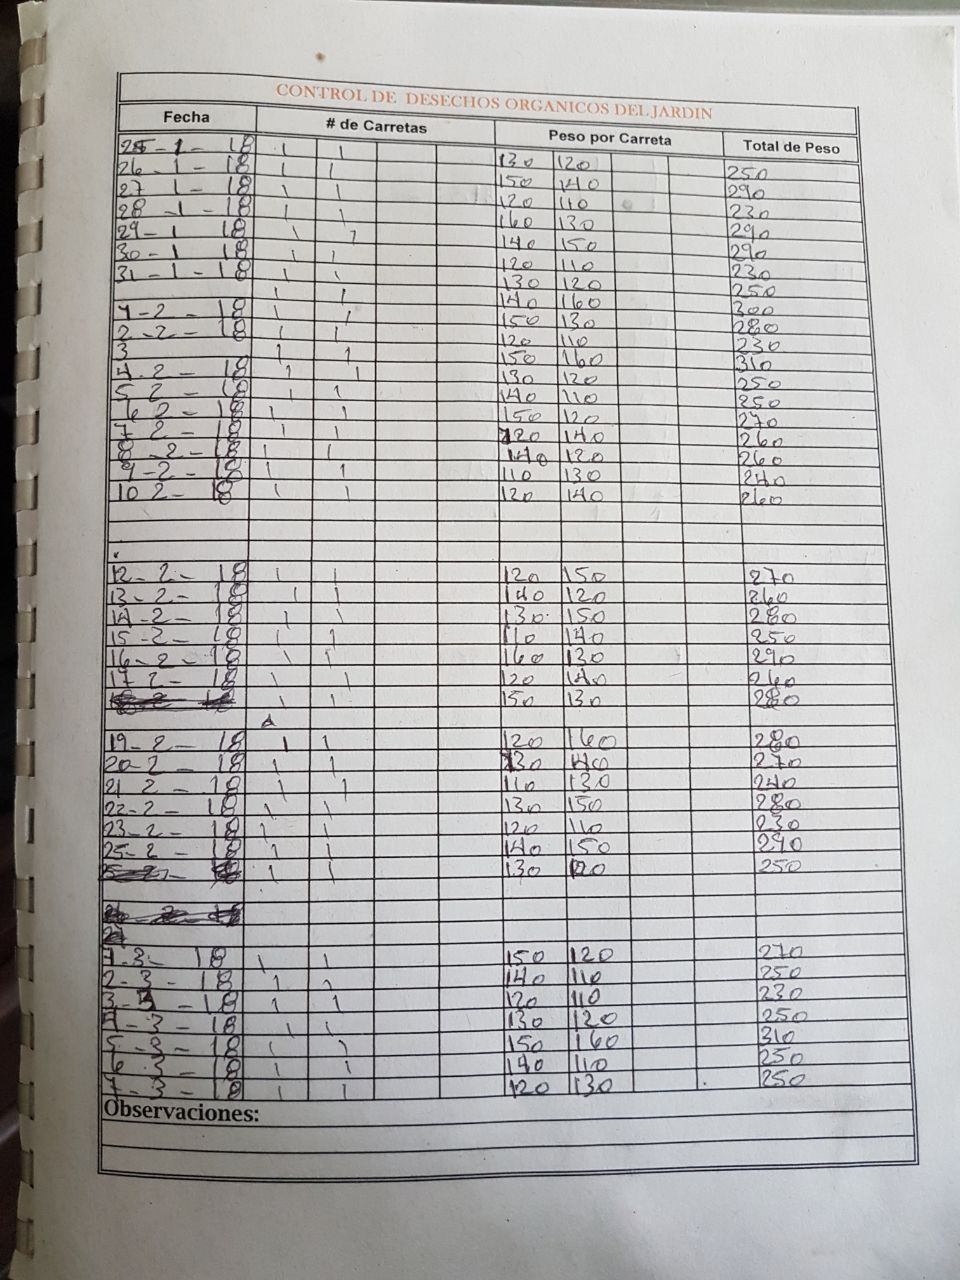 CONTROL DE DESECHOS ORGANICOS DEL JARDIN
Fecha # de Carretas Peso por Carreta Total de Peso
25-1-18 1 1 130 120 250
26-1-18 1 1 150 140 290
27 1-18 1 1 120 110 230
28-1-18 1 1 160 130 290
29-1 18 1 1 140 150 290
30-1 18 1 1 120 110 230
31-1-18 1 1 130 120 250
1 1 140 160 300
1-2-18 1 1 150 130 280
2-2-18 1 1 120 110 230
3 1 1 150 160 310
4.2-18 1 1 130 120 250
5 2-18 1 1 140 110 250
6 2-18 1 1 150 120 270
7 2-18 1 1 120 140 260
8-2-18 1 1 140 120 260
9-2-18 1 1 110 130 240
10 2-18 1 1 120 140 260
12-2-18 1 1 120 150 270
13-2-18 1 1 140 120 260
14-2-18 1 1 130 150 280
15-2-18 1 1 110 140 250
16-2-18 1 1 160 130 290
17 2-18 1 1 120 140 260
1 1 150 130 280
19-2-18 1 1 120 160 280
20-2-18 1 1 130 140 270
21 2-18 1 1 110 130 240
22-2-18 1 1 130 150 280
23-2-18 1 1 120 110 230
25-2-18 1 1 140 150 290
1 1 130 120 250
1-3-18 1 1 150 120 270
2-3-18 1 1 140 110 250
3-3-18 1 1 120 110 230
4-3-18 1 1 130 120 250
5-3-18 1 1 150 160 310
6 3-18 1 1 140 110 250
7-3-18 1 1 120 130 250
Observaciones: